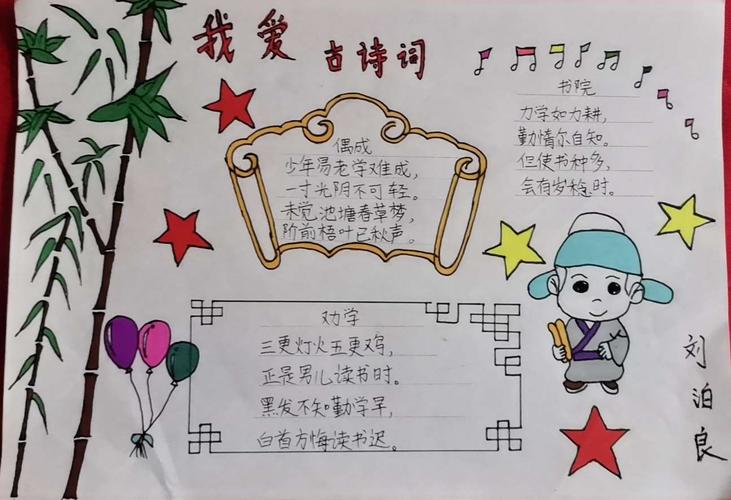 我爱古诗词
偶成
少年易老学难成，
一寸光阴不可轻。
未觉池塘春草梦，
阶前梧叶已秋声。
书院
力学如力耕，
勤惰尔自知。
但使书种多，
会有岁稔时。
劝学
三更灯火五更鸡，
正是男儿读书时。
黑发不知勤学早，
白首方悔读书迟。
刘泊良